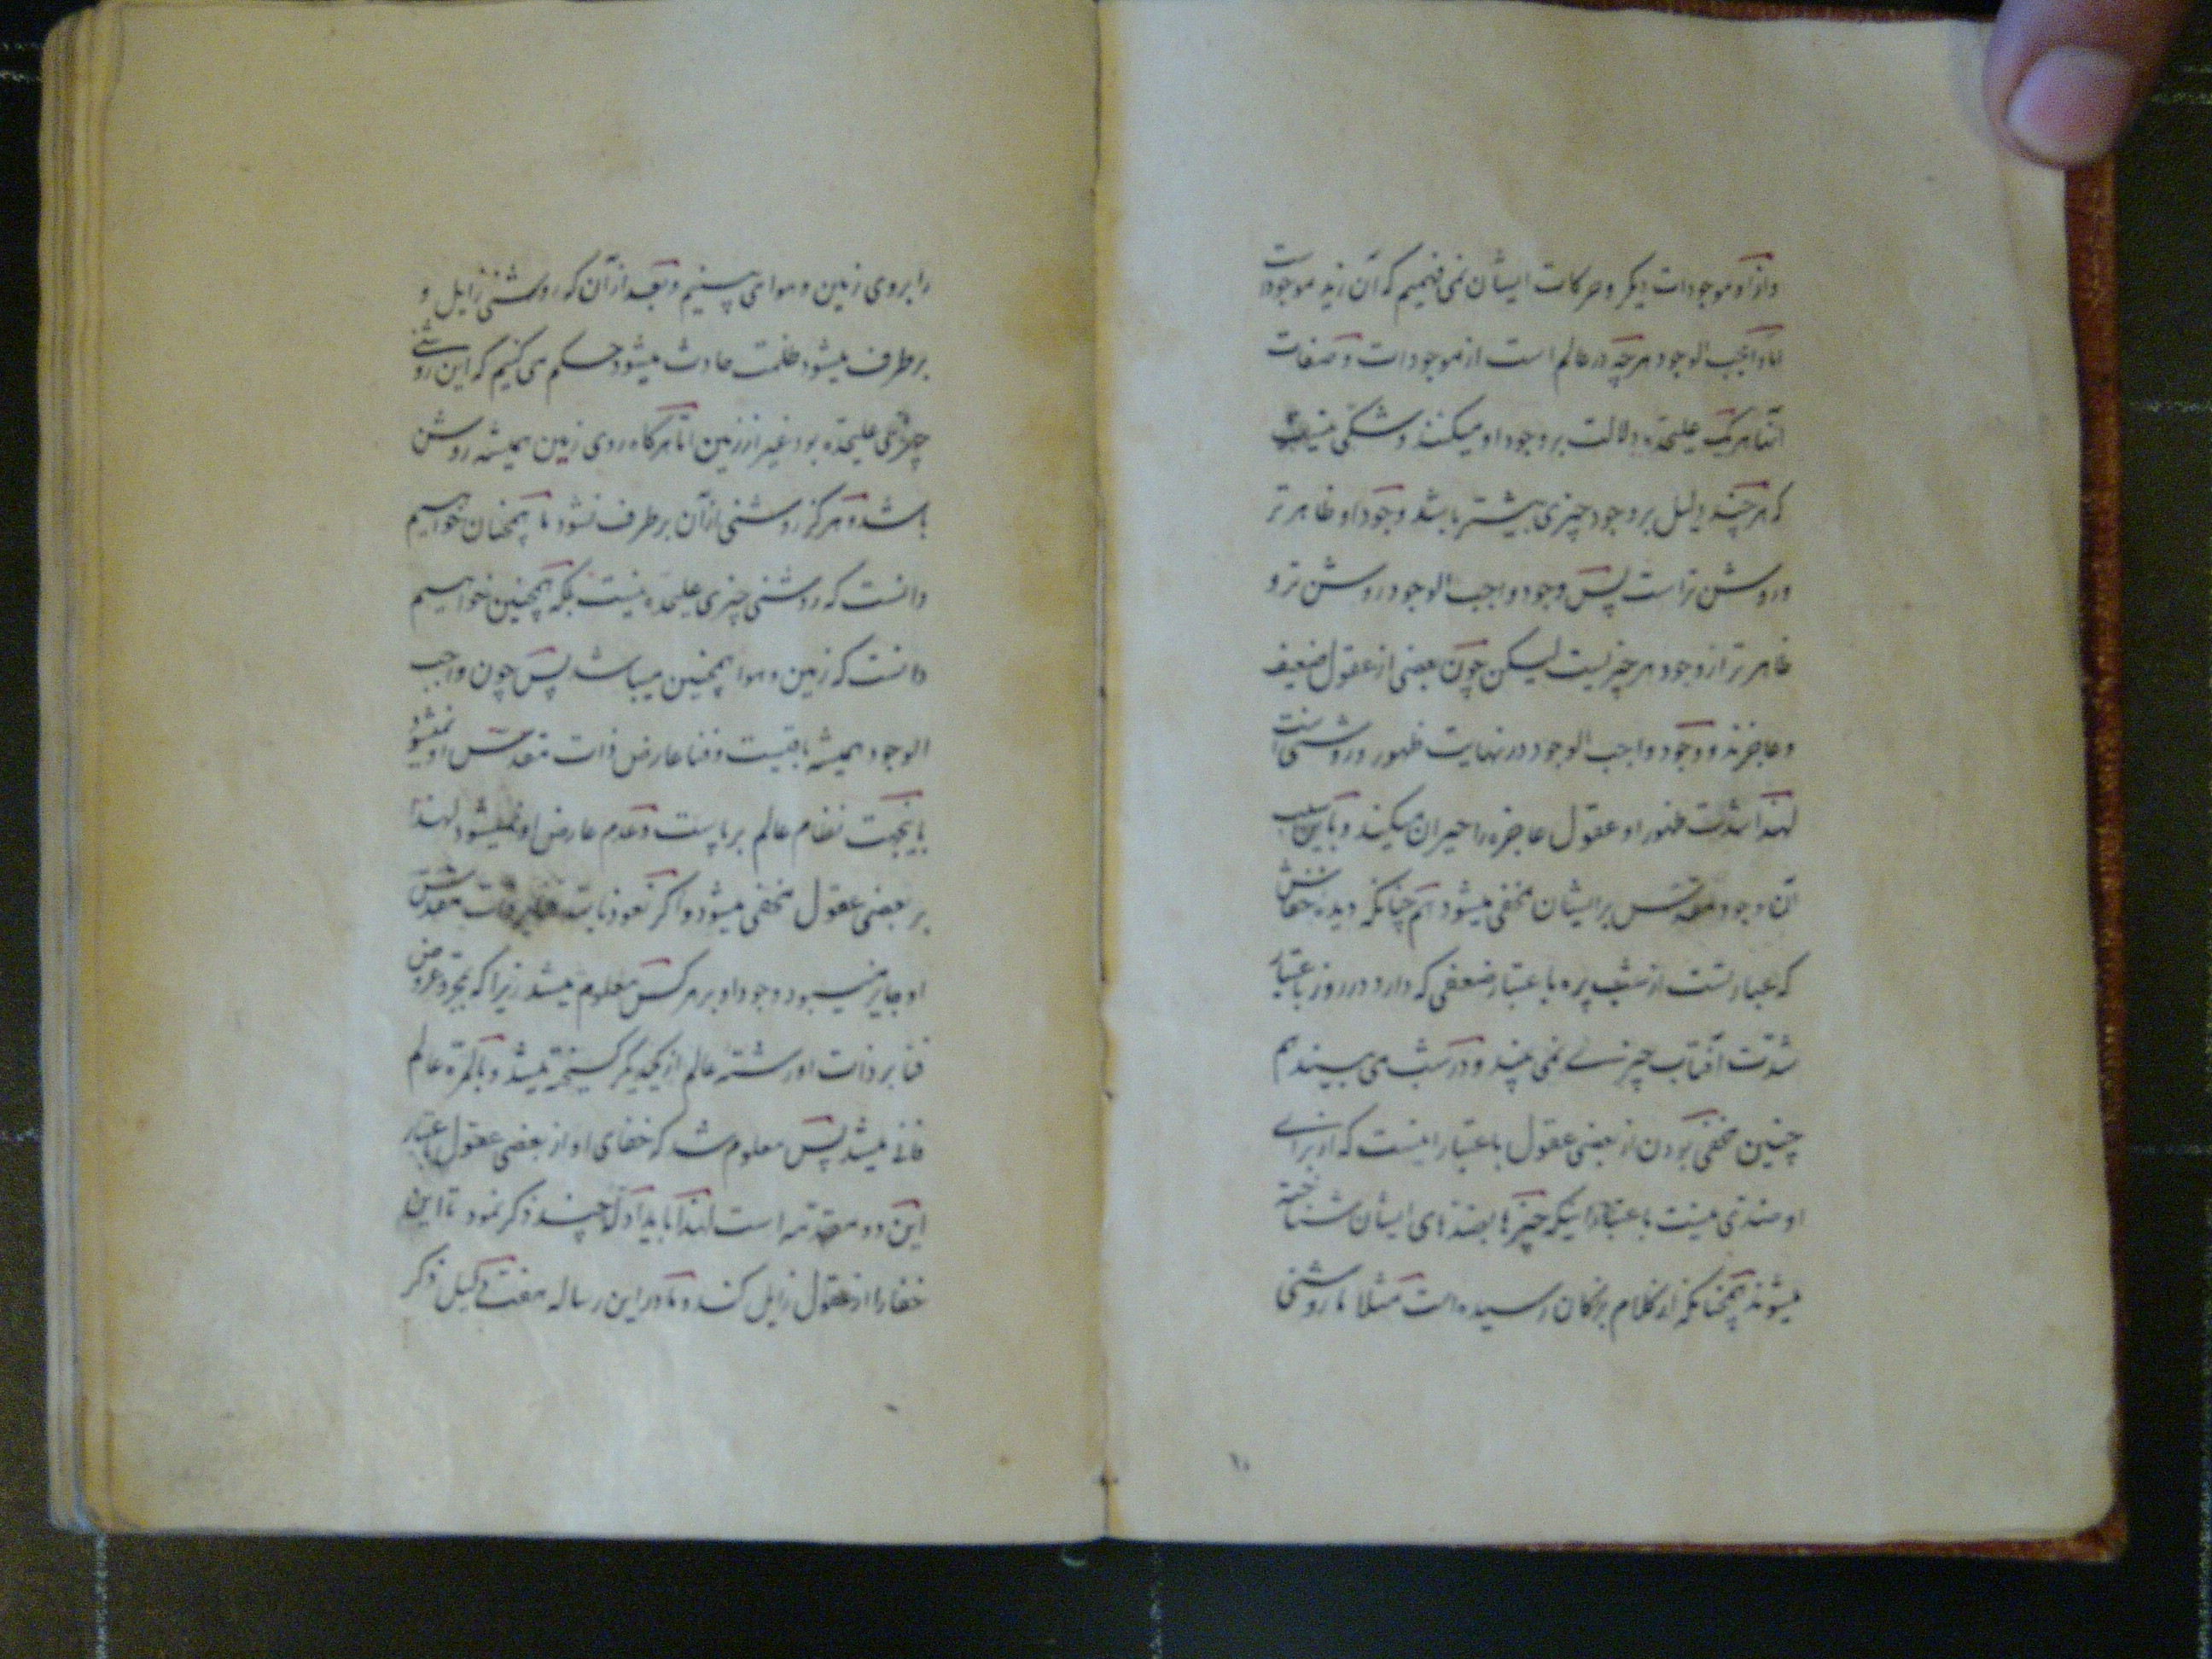 واز او موجودات دیگر و حرکات ایشان نمی فهمیم که آن زید موجود است
اما واجب الوجود هرچه در عالم است از موجودات و صفات
آنها هر یک علیحده دلالت بر وجود او میکنند و شکی نیست
که هر چند دلیل بر وجود چیزی بیشتر باشد وجود او ظاهر تر
و روشن تر است پس وجود واجب الوجود روشن تر و
ظاهر تر از وجود هر چیزیست لیکن چون بعضی از عقول ضعیف
و عاجزند و وجود واجب الوجود در نهایت ظهور و روشنی است
لهذا شدت ظهور او عقول عاجزه را حیران میکند و باین سبب
آن وجود مقدس بر ایشان مخفی میشود همچنانکه دیده خفاش
که عبارتست از شب پره باعتبار ضعفی که دارد در روز باعتبار
شدت آفتاب چیزی نمی بیند و در شب می بیند هم
چنین مخفی بودن از بعضی عقول باعتبار اینست که از برای
او ضدی نیست باعتبار اینکه چیزها بضدهای ایشان شناخته
میشوند همچنانکه از کلام بزرگان رسیده است مثلا ما روشنی
۱۰
را بروی زمین و هوا می بینیم و بعد از آن که روشنی زایل و
برطرف میشود ظلمت حادث میشود حکم می کنیم که این روشنی
چیزی علیحده بود غیر از زمین اما هرگاه روی زمین همیشه روشن
باشد و هرگز روشنی از آن برطرف نشود ما همچنان خواهیم
دانست که روشنی چیزی علیحده نیست بلکه همچنین خواهیم
دانست که زمین و هوا همچنین میباشد پس چون واجب
الوجود همیشه باقیست و فنا عارض ذات مقدس او نمیشود
باینجهت نظام عالم برپاست و عدم عارض او نمیشود لهذا
بر بعضی عقول مخفی میشود و اگر نعوذ بالله ذات مقدس
او جایز میبود وجود او بر هرکس معلوم میشد زیرا که بمجرد عروض
فنا بر ذات او رشته عالم از یکدیگر گسیخته میشد و بالمره عالم
فانی میشد پس معلوم شد که خفای او از بعضی عقول باعتبار
این دو مقدمه است لهذا باید اول چند ذکر نمود تا این
خفا را از عقول زایل کند و ما در این رساله هفت دلیل ذکر